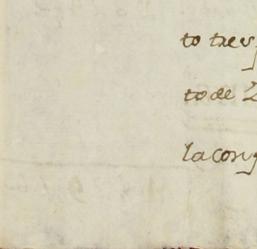 to tres
to de
la con